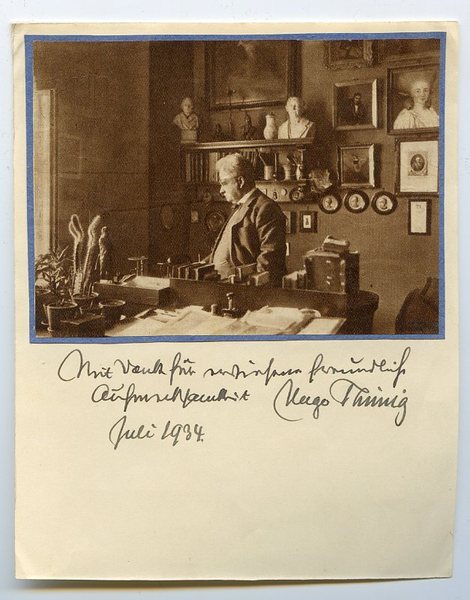 Mit Dank für erwiesene freundliche
Aufmerksamkeit Hugo Thimig
Juli 1934.